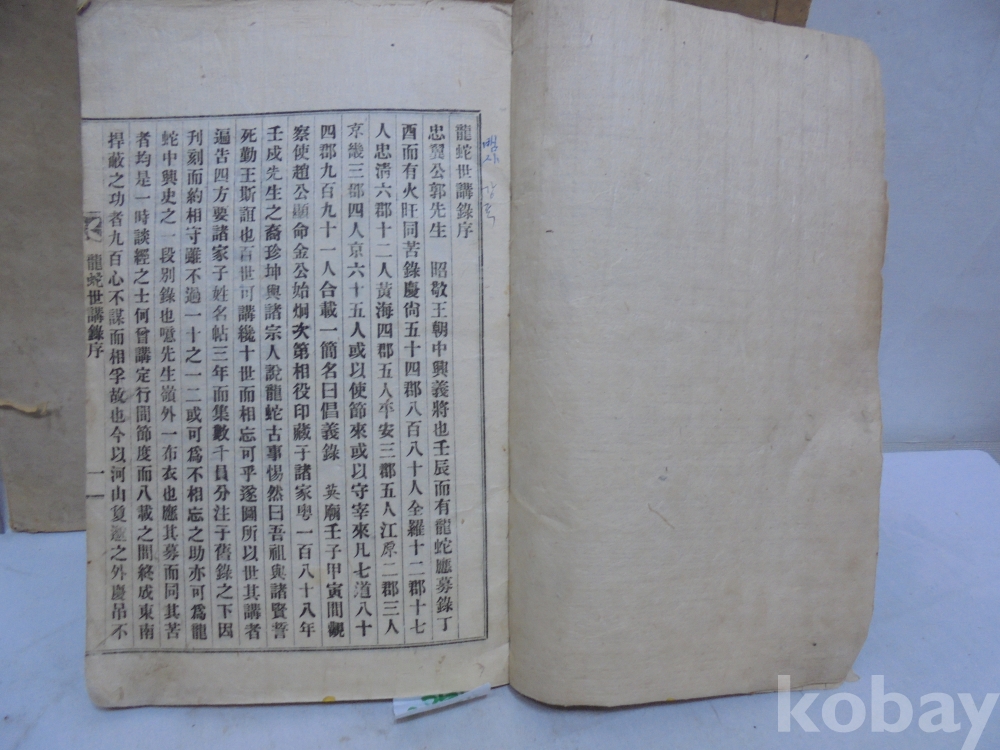 龍蛇世講錄序
忠翼公郭先生 昭敬王朝中興義將也壬辰而有龍蛇應募錄丁
酉而有火旺同苦錄慶尙五十四郡八百八十人全羅十二郡十七
人忠淸六郡十二人黃海四郡五人平安三郡五人江原二郡三人
京畿三郡四人京六十五人或以使節來或以守宰來凡七道八十
四郡九百九十一人合載一簡名曰倡義錄 英廟壬子甲寅間觀
察使趙公顯命金公始炯次第相役印藏于諸家粤一百八十八年
壬戌先生之裔珍坤與諸宗人說龍蛇古事惕然曰吾祖與諸賢誓
死勤王斯誼也百世可講纔十世而相忘可乎遂圖所以世其講者
遍告四方要諸家子姓名帖三年而集數千員分注于舊錄之下因
刋刻而約相守雖不過一十之一二或可爲不相忘之助亦可爲龍
蛇中興史之一段別錄也噫先生嶺外一布衣也應其募而同其苦
者均是一時談經之士何曾講定行間節度而八載之間終成東南
捍蔽之功者九百心不謀而相孚故也今以河山夐邈之外慶吊不
龍蛇世講錄序
一
kobay